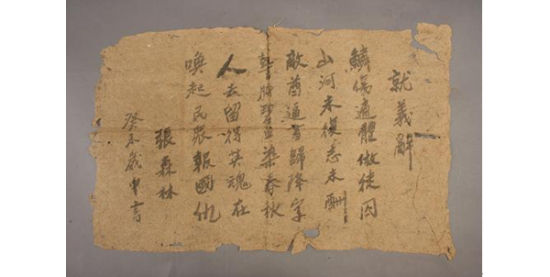 就義辭
鱗傷遍體做徒囚
山河未復志未酬
敵酋逼書歸降字
誓將碧血染春秋
人去留得英魂在
喚起民衆報國仇
張森林
癸未歲